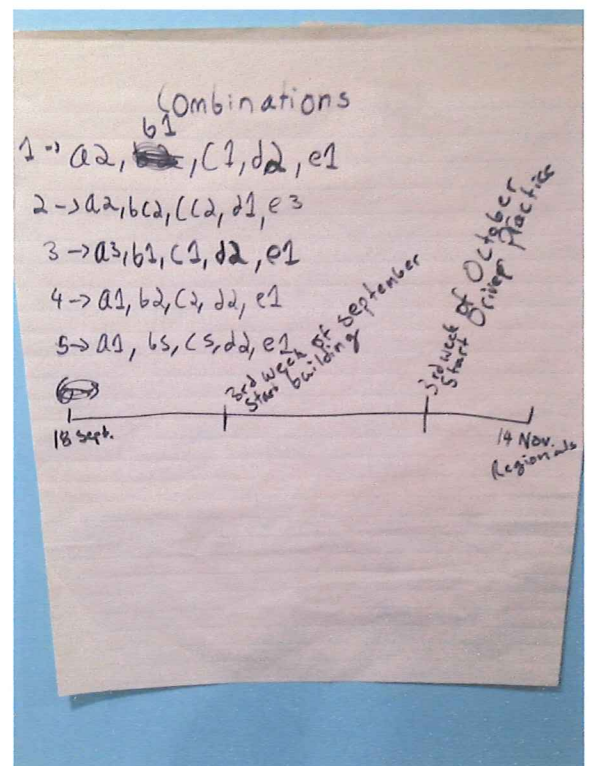 Combinations
b1
1 → a2, C1, d2, e1
2 → a2, bc2, Cc2, d1, e3
3 → a3, b1, C1, d2, e1
4 → a1, b2, C2, d2, e1
5 → a1, b5, C5, d2, e1
3rd week of September
Start building
3rd week of October
Start Driver Practice
18 Sept.
14 Nov.
Regionals